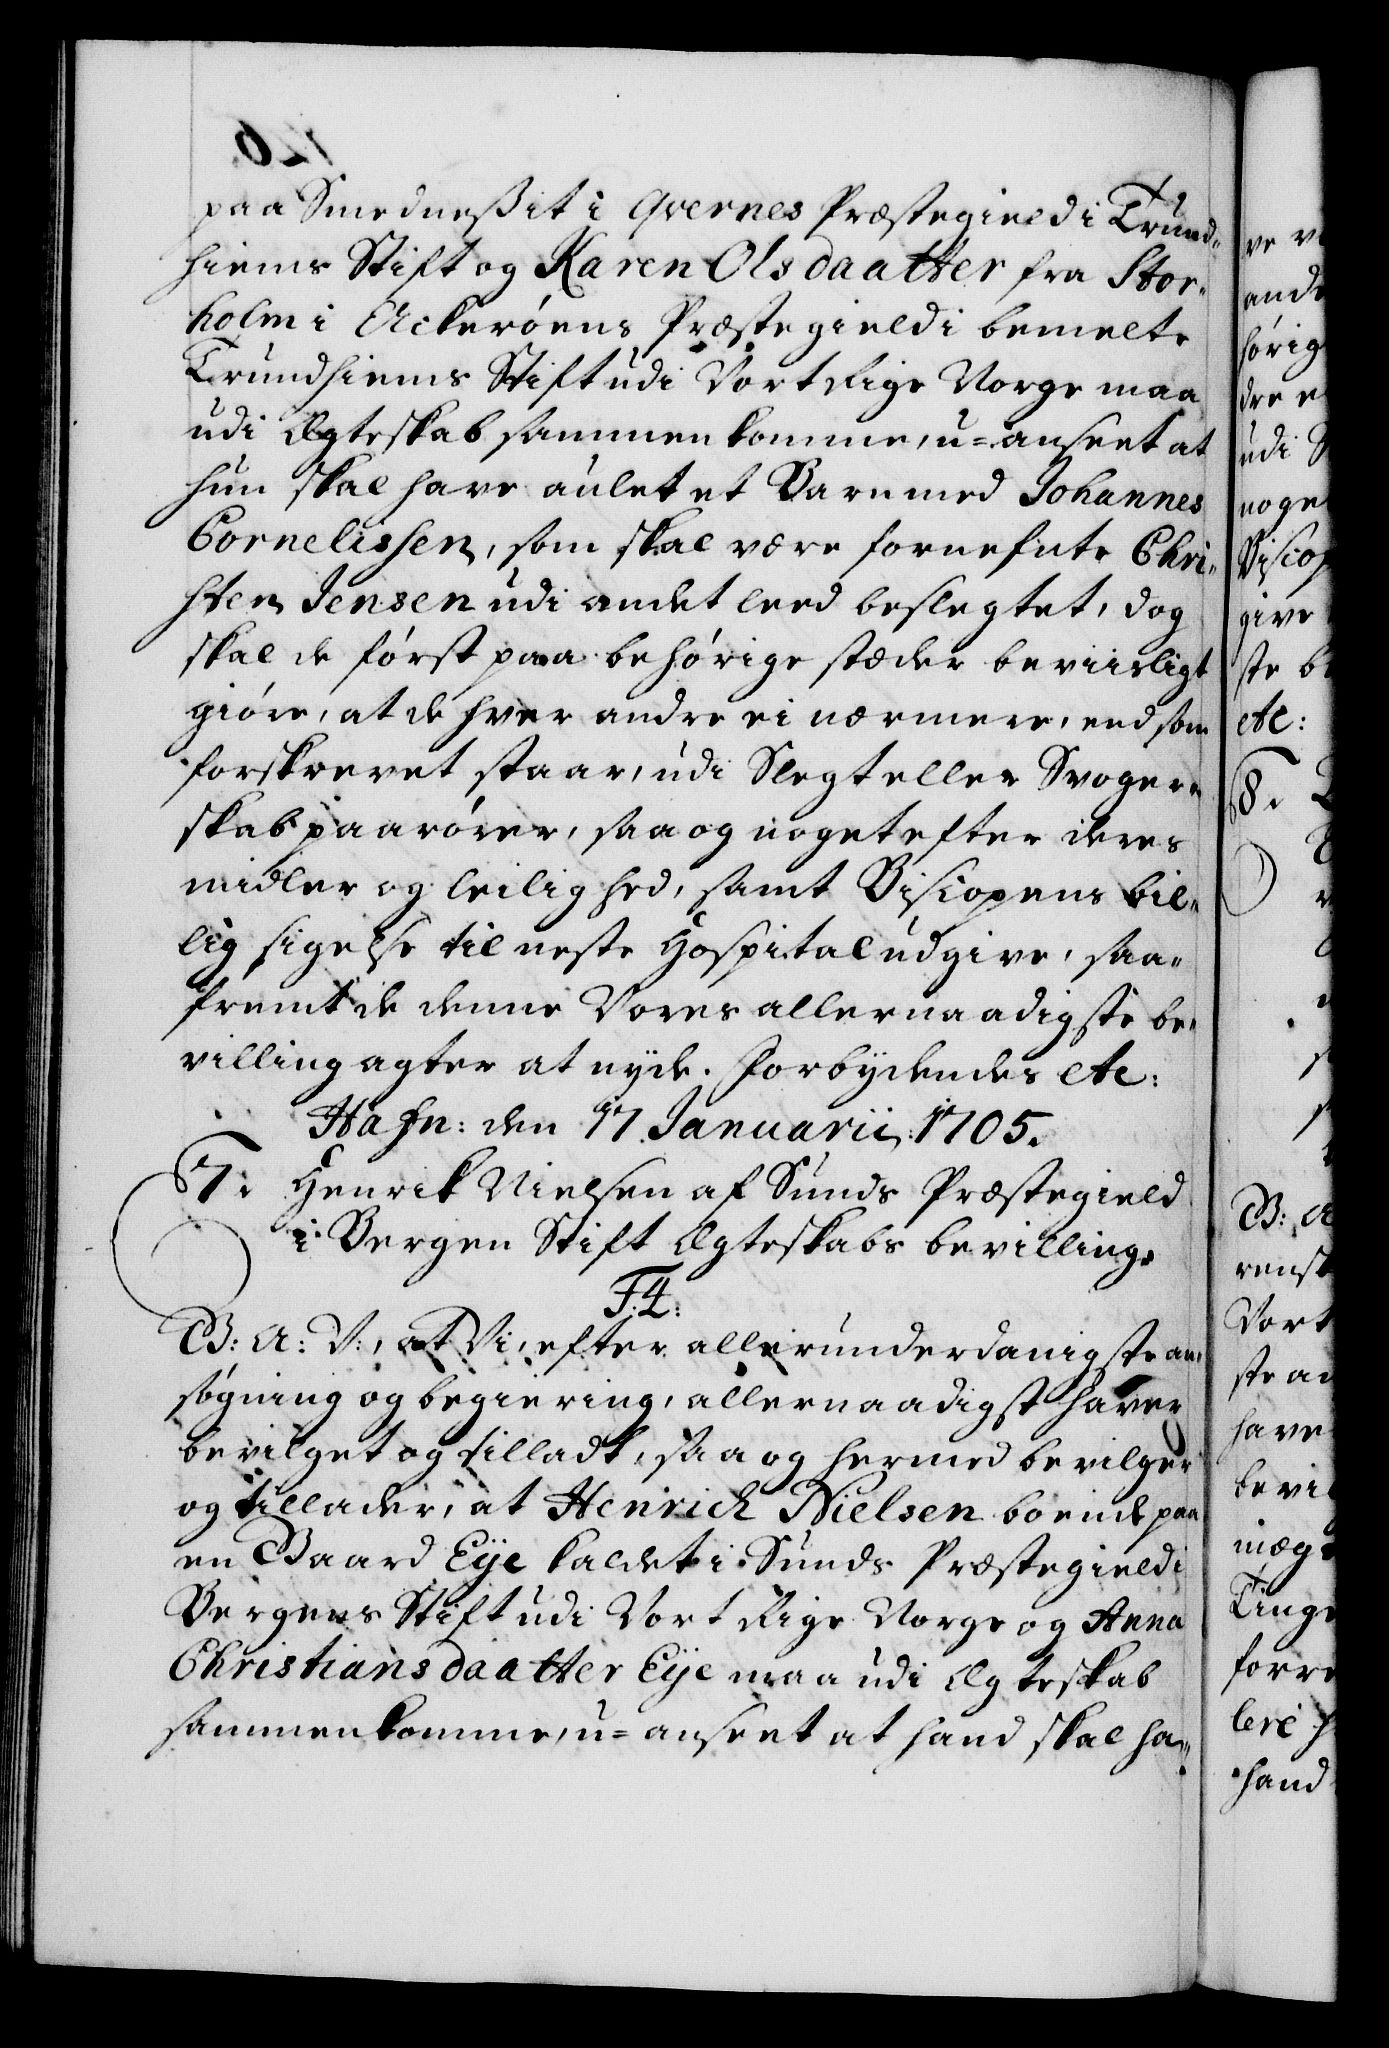 paa Smednesßit i Qvernes Præstegield i Trund-
hiems Stift og Karen Olsdaatter fra Stor-
holm i Ackeröens Præstegield i bemelte
Trundhiems Stift udi Vort Rige Norge maa
udi Ægteskab sammenkomme, u=anseet at
hun skal have aulet et Barn med Johannes
Cornelissen, som skal være fornefnte Chri-
sten Jensen udi andet leed beslegtet, dog
skal de först paa behörige stæder beviisligt
giöre, at de hver andre ei nærmere, end som
forskrevet staar, udi Slegt eller Svoger-
skab paarörer, saa og noget efter deres
midler og leilighed, samt Biscopens bil-
lig sigelse til neste Hospital udgive, saa-
fremt de denne Vores allernaadigste be-
villing agter at nyde. Forbydendes etc:
Hafn: den 17 Januarii: 1705.
7. Henrik Nielsen af Sunds Præstegield
i Bergen Stift Ægteskabs bevilling.
F: 4:
G: A: V:, at Vi, efter allerunderdanigste an-
søgning og begiering, allernaadigst haver
bevilget og tilladt, saa og hermed bevilger
og tillader, at Henrich Nielsen boende paa
en Gaard Eye kaldet i Sunds Præstegield i
Bergens Stift udi Vort Rige Norge og Anna
Christiansdaatter Eye maa udi Ægteskab
sammenkomme, u=anseet at hand skal ha-